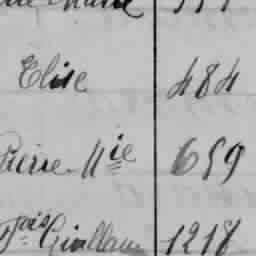 Marie
Elise 484
Pierre Mie 659
Fçois Guillau 1218